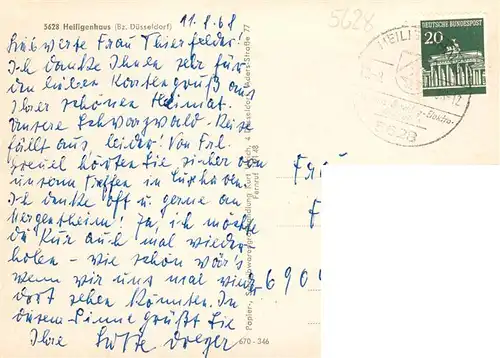 5628 Heiligenhaus (Bz. Düsseldorf)
11.8.68
5628
Liebwerte Frau Thierfelder.
Ich danke Ihnen sehr für
den lieben Kartengruß aus
Ihrer schönen Heimat.
Unsere Schwarzwald-Reise
fällt aus, leider! Von Frl.
hörten Sie sicher von
unserm Treffen in Cuxhaven.
Ich denke oft u. gerne an
Mergentheim! Ja, ich möchte
die Kur auch mal wieder-
holen - wie schön wär's
wenn wir uns mal wieder
dort sehen könnten. In
diesem Sinne grüßt Sie
Ihre Lotte
DEUTSCHE BUNDESPOST
20
HEILIG
5628
Frau
F
6900
Papier-, Schreibwarengroßhandlung Kurt 4 Düsseldorf, Aders-Straße 77
Fernruf 1 01 48
670 - 346